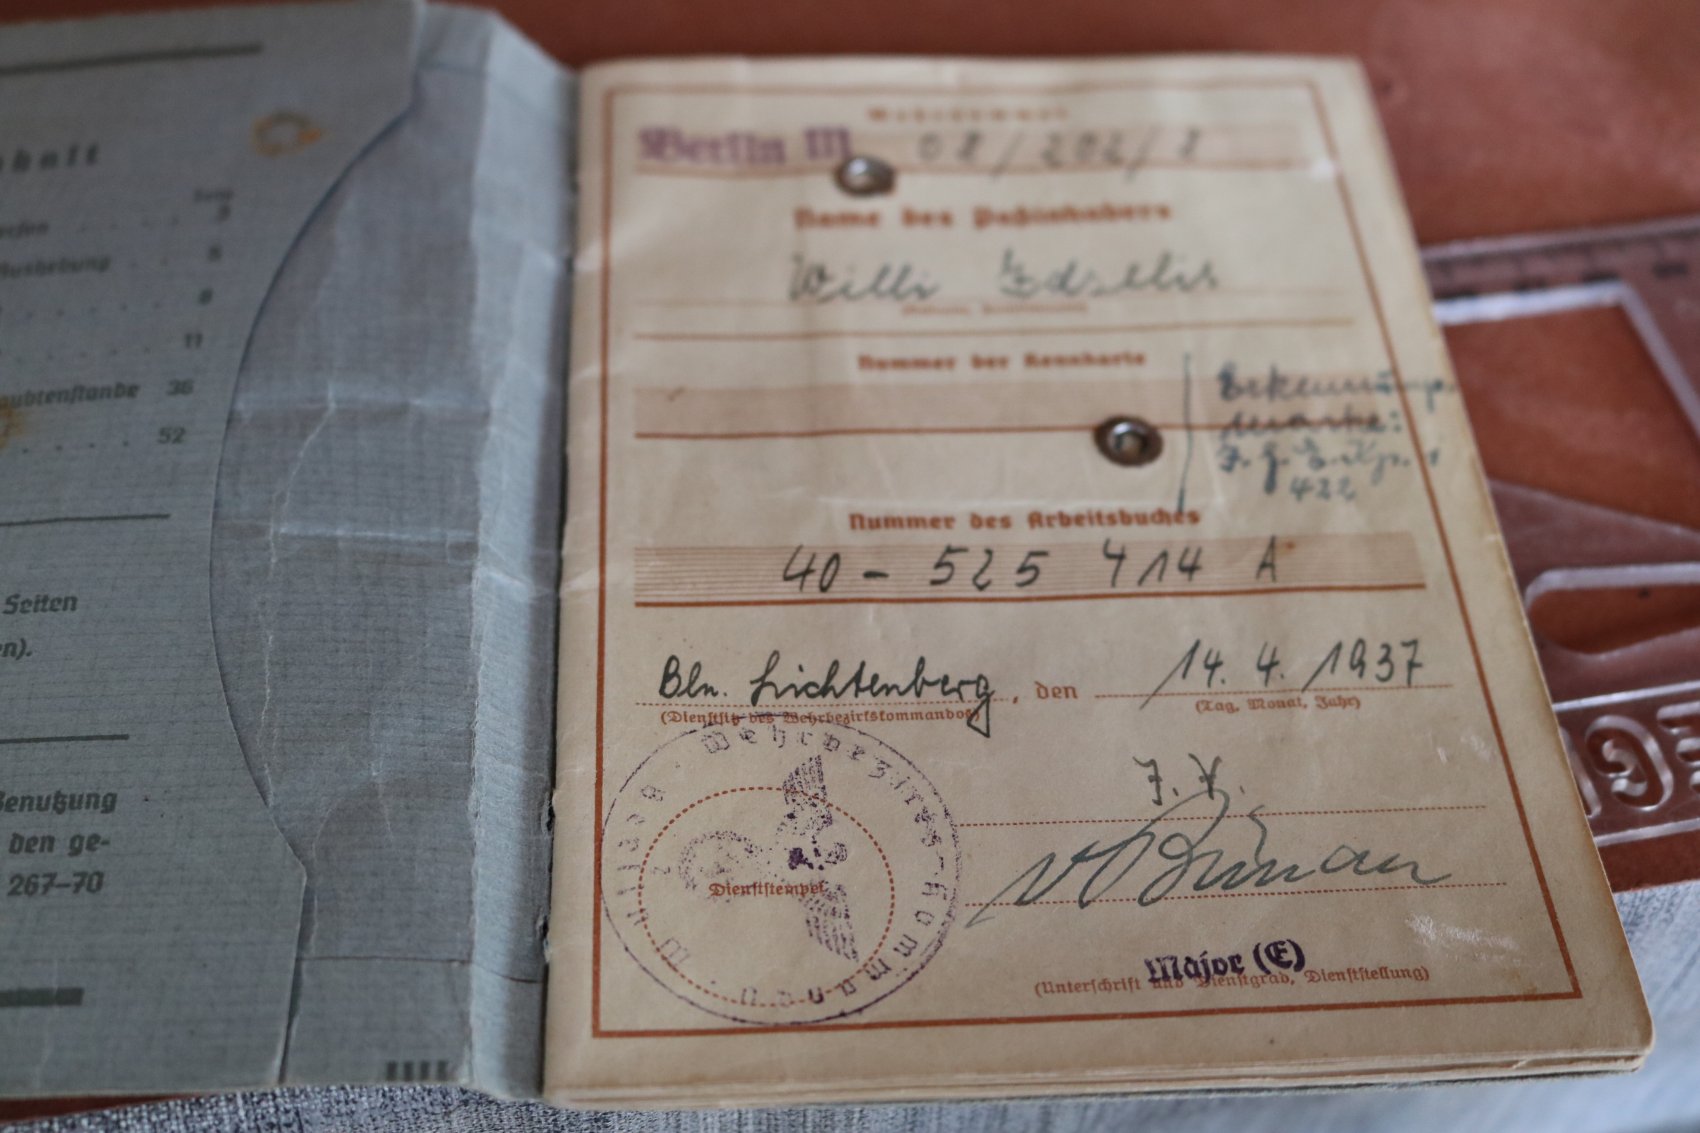 Inhalt
Seite
3
Aushebung 5
8
11
Beurlaubtenstande 36
52
Seiten
Benutzung
den ge-
267–70
Wehrnummer
Berlin III 08/202/8
Name des Paßinhabers
Willi
Nummer der Kennkarte
Erkennungs-
marke:
422
Nummer des Arbeitsbuches
40 – 525 414 A
Bln. Lichtenberg, den 14. 4. 1937
(Dienstsitz des Wehrbezirkskommandos) (Tag, Monat, Jahr)
Wehrbezirks-Kommando
J. V.
Dienststempel
Major (E)
(Unterschrift und Dienstgrad, Dienststellung)